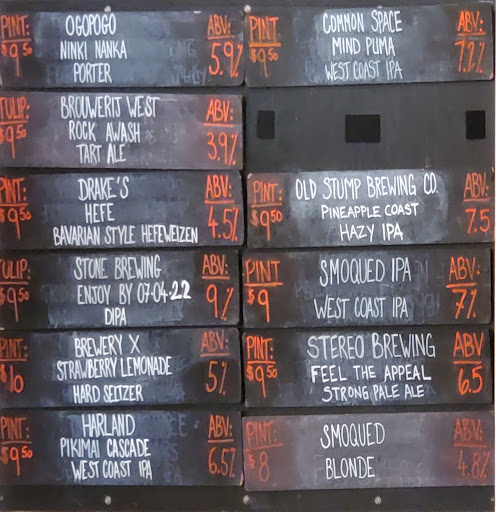 PINT: OGOPOGO ABV:
$9.50 NINKI NANKA 5.9%
PORTER
TULIP: BROUWERIJ WEST ABV:
$9.50 ROCK AWASH 3.9%
TART ALE
PINT: DRAKE'S ABV:
$9.50 HEFE 4.5%
BAVARIAN STYLE HEFEWEIZEN
TULIP: STONE BREWING ABV:
$9.50 ENJOY BY 07.04.22 9%
DIPA
PINT: BREWERY X ABV:
$10 STRAWBERRY LEMONADE 5%
HARD SELTZER
PINT: HARLAND ABV:
$9.50 PIKIMAI CASCADE 6.5%
WEST COAST IPA
PINT: COMMON SPACE ABV:
$9.50 MIND PUMA 7.2%
WEST COAST IPA
PINT: OLD STUMP BREWING CO. ABV:
$9.50 PINEAPPLE COAST 7.5
HAZY IPA
PINT SMOQUED IPA ABV:
$9 WEST COAST IPA 7%
PINT: STEREO BREWING ABV
$9.50 FEEL THE APPEAL 6.5
STRONG PALE ALE
PINT: SMOQUED ABV:
$8 BLONDE 4.8%